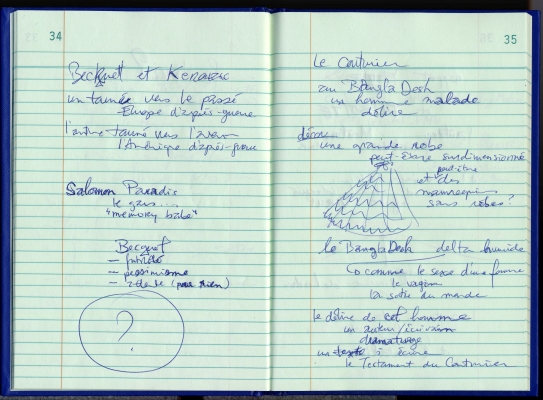 34
Beckett et Kerouac
un tourné vers le passé
Europe d'après-guerre
l'autre tourné vers l'avenir
l'Amérique d'après-guerre
Salomon Paradis
le gars...
"memory babe"
Beckett
— futilité
— pessimisme
— (pour rien)
?
35
Le Couturier
au BanglaDesh
un homme malade
délire
désir
une grande robe
peut-être surdimensionnée
peut-être
et des
mannequins
sans robes?
le BanglaDesh delta humide
comme le sexe d'une femme
le vagin
la sortie du monde
le délire de cet homme
un auteur/écrivain
dramaturge
un texte à écrire
le Testament du Couturier